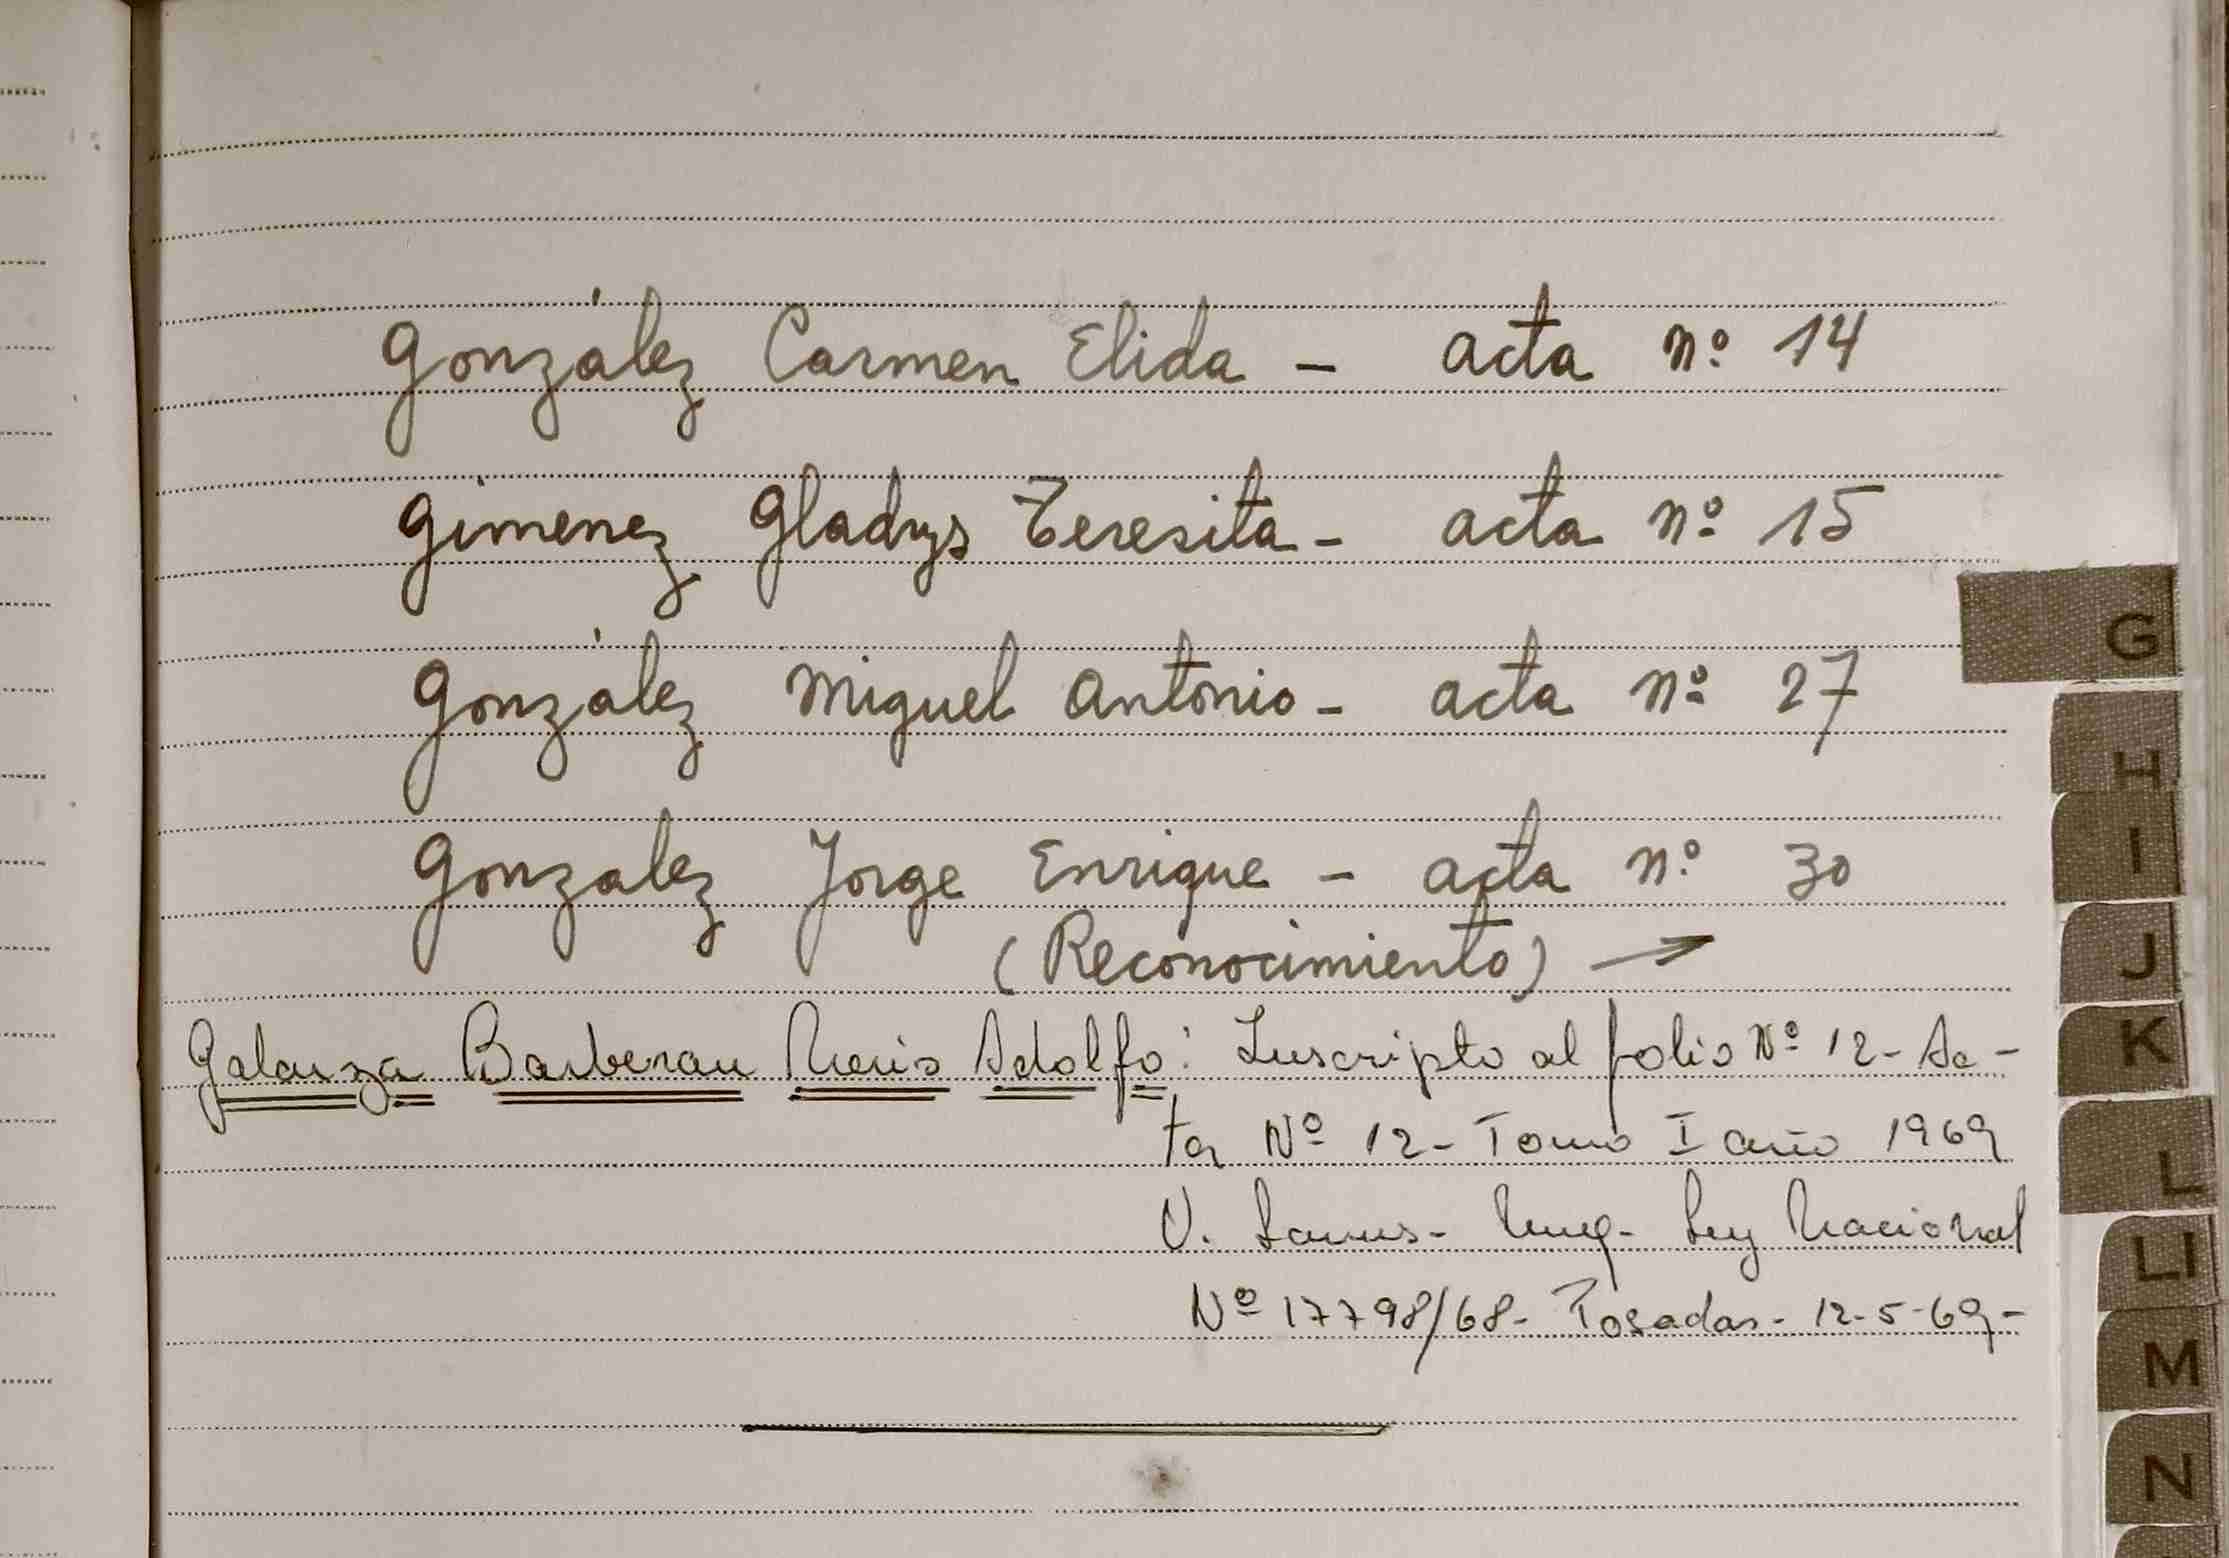 González Carmen Elida - acta nº 14
Gimenez Gladys Teresita - acta nº 15
González Miguel Antonio - acta nº 27
Gonzalez Jorge Enrique - acta nº 30
(Reconocimiento) →
Galarza Barberan Neris Adolfo: Inscripto al folio Nº 12 - Ac-
ta Nº 12 - Tomo I año 1969
V. Lanus - Ley Nacional
Nº 17798/68 - Posadas - 12-5-69 -
G
H
I
J
K
L
LI
M
N